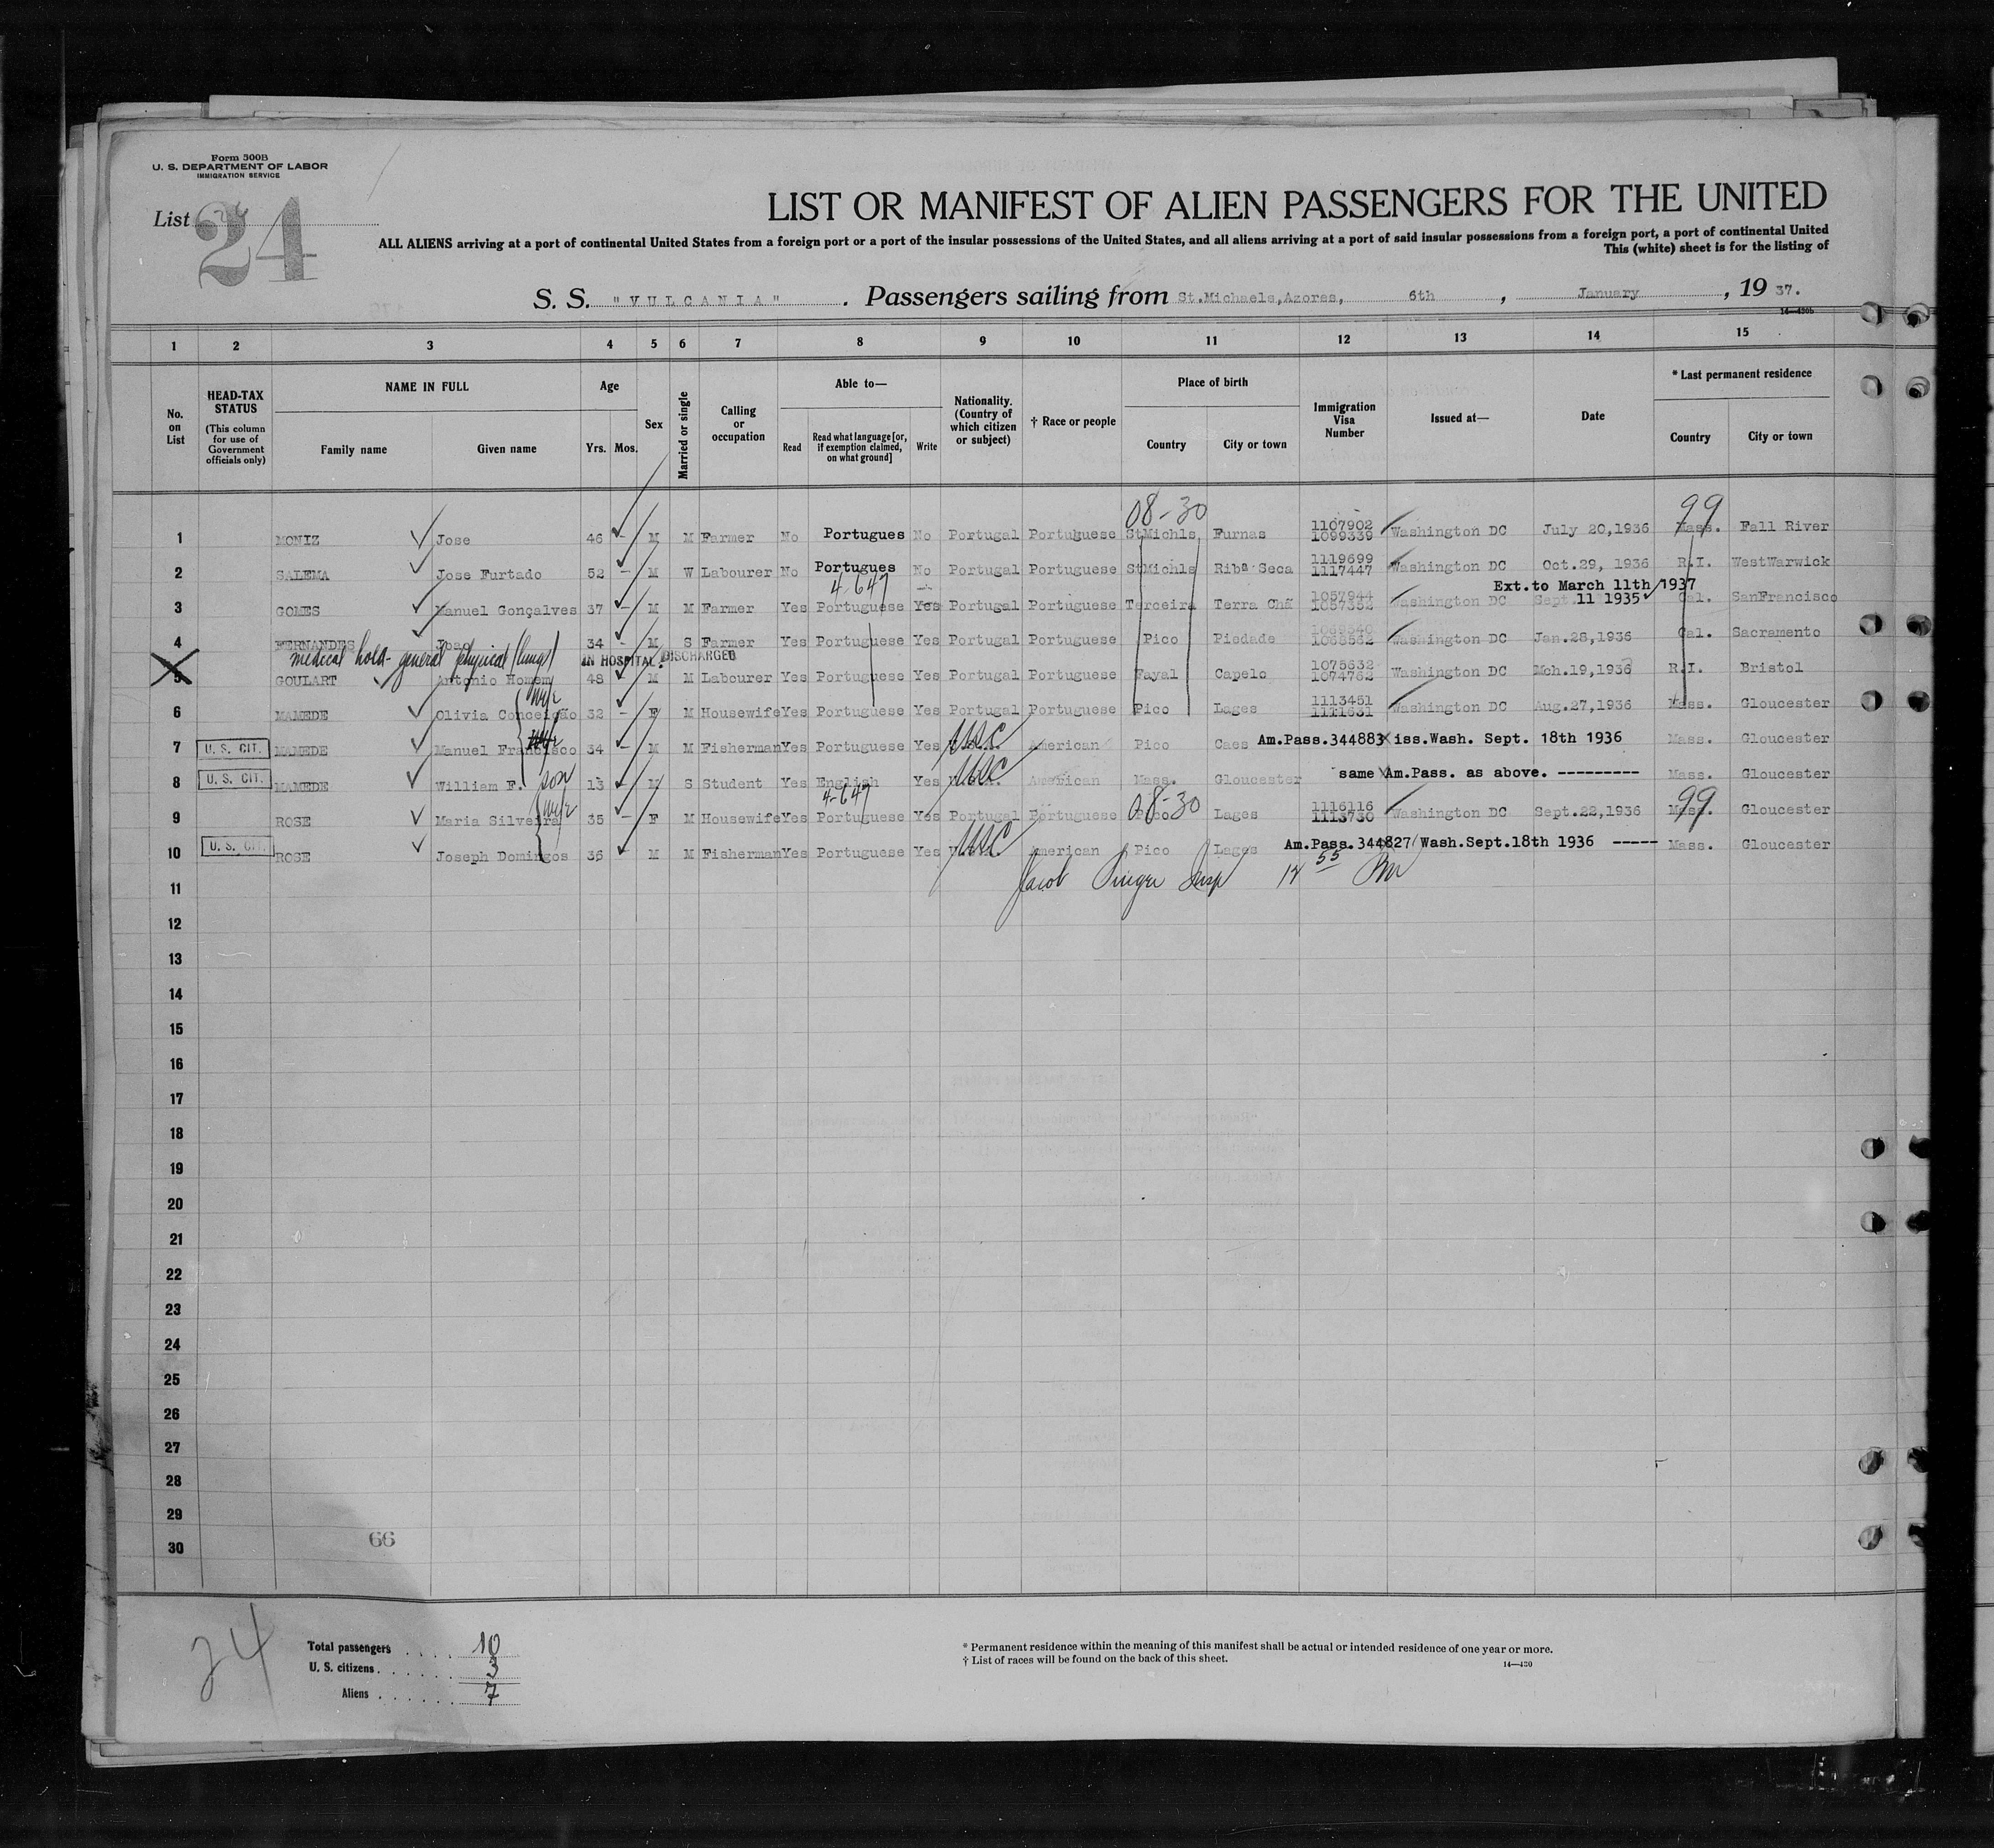 Form 500B
U. S. DEPARTMENT OF LABOR
IMMIGRATION SERVICE
List 24
LIST OR MANIFEST OF ALIEN PASSENGERS FOR THE UNITED
ALL ALIENS arriving at a port of continental United States from a foreign port or a port of the insular possessions of the United States, and all aliens arriving at a port of said insular possessions from a foreign port, a port of continental United
This (white) sheet is for the listing of
S. S. "VULCANIA". Passengers sailing from St.Michaels,Azores, 6th, January, 19 37.
14—430b
1 2 3 4 5 6 7 8 9 10 11 12 13 14 15
No. on List
HEAD-TAX STATUS (This column for use of Government officials only)
NAME IN FULL Family name Given name
Age Yrs. Mos.
Sex
Married or single
Calling or occupation
Able to— Read Read what language [or, if exemption claimed, on what ground] Write
Nationality. (Country of which citizen or subject)
† Race or people
Place of birth Country City or town
Immigration Visa Number
Issued at—
Date
* Last permanent residence Country City or town
08-30 99
1 MONIZ Jose 46 - M M Farmer No Portugues No Portugal Portuguese StMichls Furnas 1107902 1099339 Washington DC July 20,1936 Mass. Fall River
2 SALEMA Jose Furtado 52 - M W Labourer No Portugues No Portugal Portuguese StMichls Ribª Seca 1119699 1117447 Washington DC Oct.29, 1936 R.I. WestWarwick
4-647 Ext.to March 11th 1937
3 GOMES Manuel Gonçalves 37 - M M Farmer Yes Portuguese Yes Portugal Portuguese Terceira Terra Chã 1057944 1057352 Washington DC Sept.11 1935 Cal. SanFrancisco
4 FERNANDES Joao 34 - M S Farmer Yes Portuguese Yes Portugal Portuguese Pico Piedade 1068562 Washington DC Jan.28,1936 Cal. Sacramento
medical hold - general physical (lungs) IN HOSPITAL. DISCHARGED
5 GOULART Antonio Homem 48 M M Labourer Yes Portuguese Yes Portugal Portuguese Fayal Capelo 1075632 1074762 Washington DC Mch.19,1936 R.I. Bristol
wife
6 MAMEDE Olivia Conceição 32 - F M Housewife Yes Portuguese Yes Portugal Portuguese Pico Lages 1113451 1111631 Washington DC Aug.27,1936 Mass. Gloucester
7 U. S. CIT. MAMEDE Manuel Francisco 34 - M M Fisherman Yes Portuguese Yes USC American Pico Caes Am.Pass.344883 iss.Wash. Sept. 18th 1936 Mass. Gloucester
son
8 U. S. CIT. MAMEDE William F. 13 - M S Student Yes English Yes USC American Mass. Gloucester same Am.Pass. as above. --------- Mass. Gloucester
wife 4-647 08-30 99
9 ROSE Maria Silveira 35 - F M Housewife Yes Portuguese Yes Portugal Portuguese Pico Lages 1116116 1113730 Washington DC Sept.22,1936 Mass. Gloucester
10 U. S. CIT. ROSE Joseph Domingos 36 - M M Fisherman Yes Portuguese Yes USC American Pico Lages Am.Pass.344827 Wash.Sept.18th 1936 ----- Mass. Gloucester
11 Jacob Singer Insp 12 55 Pm
12
13
14
15
16
17
18
19
20
21
22
23
24
25
26
27
28
29
30
66
24
Total passengers 10
U. S. citizens 3
Aliens 7
* Permanent residence within the meaning of this manifest shall be actual or intended residence of one year or more.
† List of races will be found on the back of this sheet.
14—430